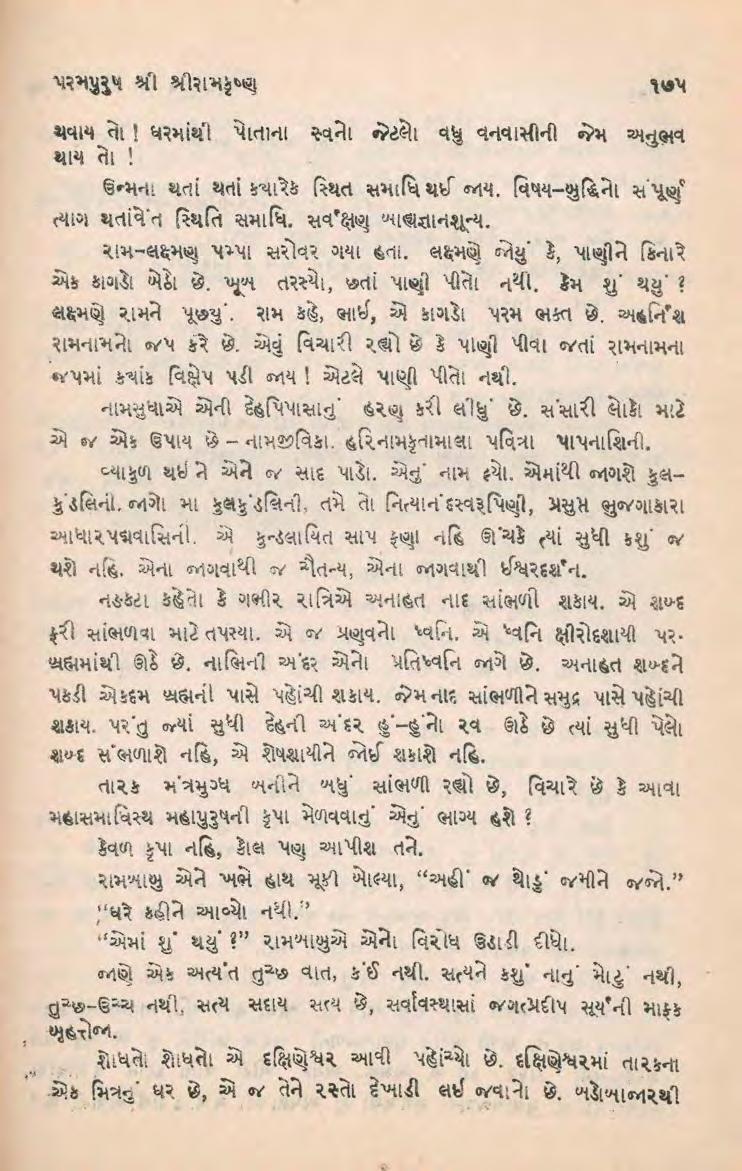 પરમપુરુષ શ્રી શ્રીરામકૃષ્ણ ૧૭૫
થવાય તો ! ઘરમાંથી પોતાના સ્વનો જેટલો વધુ વનવાસીની જેમ અનુભવ
થાય તો !
ઉન્મના થતાં થતાં કયારેક સ્થિત સમાધિ થઈ જાય. વિષય–બુદ્ધિનો સંપૂર્ણ
ત્યાગ થતાંવેંત સ્થિતિ સમાધિ. સર્વક્ષણ બાહ્યજ્ઞાનશૂન્ય.
રામ–લક્ષ્મણ પમ્પા સરોવર ગયા હતા. લક્ષ્મણે જોયું કે, પાણીને કિનારે
એક કાગડો બેઠો છે. ખૂબ તરસ્યો, છતાં પાણી પીતો નથી. કેમ શું થયું ?
લક્ષ્મણે રામને પૂછ્યું. રામ કહે, ભાઈ, એ કાગડો પરમ ભક્ત છે. અહર્નિશ
રામનામનો જપ કરે છે. એવું વિચારી રહ્યો છે કે પાણી પીવા જતાં રામનામના
જપમાં કયાંક વિક્ષેપ પડી જાય ! એટલે પાણી પીતો નથી.
નામસુધાએ એની દેહપિપાસાનું હરણ કરી લીધું છે. સંસારી લોકો માટે
એ જ એક ઉપાય છે – નામજીવિકા. હરિનામકૃતામાલા પવિત્રા પાપનાશિની.
વ્યાકુળ થઈ ને એને જ સાદ પાડો. એનું નામ લ્યો. એમાંથી જાગશે કુલ–
કુંડલિની. જાગો મા કુલકુંડલિની, તમે તો નિત્યાનંદસ્વરૂપિણી, પ્રસુપ્ત ભુજગાકારા
આધારપદ્મવાસિની. એ કુન્ડલાયિત સાપ ફણા નહિ ઊંચકે ત્યાં સુધી કશું જ
થશે નહિ. એના જાગવાથી જ ચૈતન્ય, એના જાગવાથી ઈશ્વરદર્શન.
નઙકટા કહેતો કે ગભીર રાત્રિએ અનાહત નાદ સાંભળી શકાય. એ શબ્દ
ફરી સાંભળવા માટે તપસ્યા. એ જ પ્રણવનો ધ્વનિ. એ ધ્વનિ ક્ષીરોદશાયી પર-
બ્રહ્મમાંથી ઊઠે છે. નાભિની અંદર એનો પ્રતિધ્વનિ જાગે છે. અનાહત શબ્દને
પકડી એકદમ બ્રહ્મની પાસે પહોંચી શકાય. જેમ નાદ સાંભળીને સમુદ્ર પાસે પહોંચી
શકાય. પરંતુ જ્યાં સુધી દેહની અંદર હું–હુંનો રવ ઊઠે છે ત્યાં સુધી પેલો
શબ્દ સંભળાશે નહિ, એ શેષશાયીને જોઈ શકાશે નહિ.
તારક મંત્રમુગ્ધ બનીને બધું સાંભળી રહ્યો છે, વિચારે છે કે આવા
મહાસમાધિસ્થ મહાપુરુષની કૃપા મેળવવાનું એનું ભાગ્ય હશે ?
કેવળ કૃપા નહિ, કોલ પણ આપીશ તને.
રામબાબુ એને ખભે હાથ મૂકી બોલ્યા, “અહીં જ થોડું જમીને જજો.”
“ઘરે કહીને આવ્યો નથી.”
“એમાં શું થયું ?” રામબાબુએ એનો વિરોધ ઉડાડી દીધો.
જાણે એક અત્યંત તુચ્છ વાત, કંઈ નથી. સત્યને કશું નાનું મોટું નથી,
તુચ્છ–ઉચ્ચ નથી, સત્ય સદાય સત્ય છે, સર્વાવસ્થાસાં જગત્પ્રદીપ સૂર્યની માફક
બૃહત્તેજા.
શોધતો શોધતો એ દક્ષિણેશ્વર આવી પહોંચ્યો છે. દક્ષિણેશ્વરમાં તારકના
એક મિત્રનું ઘર છે, એ જ તેને રસ્તો દેખાડી લઈ જવાનો છે. બડોબાજારથી